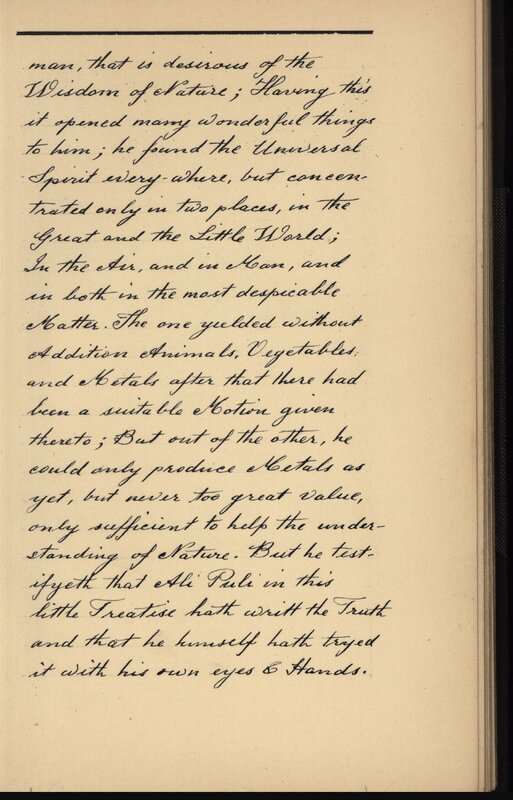 man, that is desirous of the
Wisdom of Nature; Having this
it opened many wonderful things
to him; he found the Universal
Spirit every-where, but concen-
trated only in two places, in the
Great and the Little World;
In the Air, and in Man, and
in both in the most despicable
Matter. The one yielded without
Addition Animals, Vegetables,
and Metals after that there had
been a suitable Motion given
thereto; But out of the other, he
could only produce Metals as
yet, but never too great value,
only sufficient to help the under-
standing of Nature. But he test-
ifyeth that Ali Puli in this
little Treatise hath writt the Truth
and that he himself hath tryed
it with his own eyes & Hands.